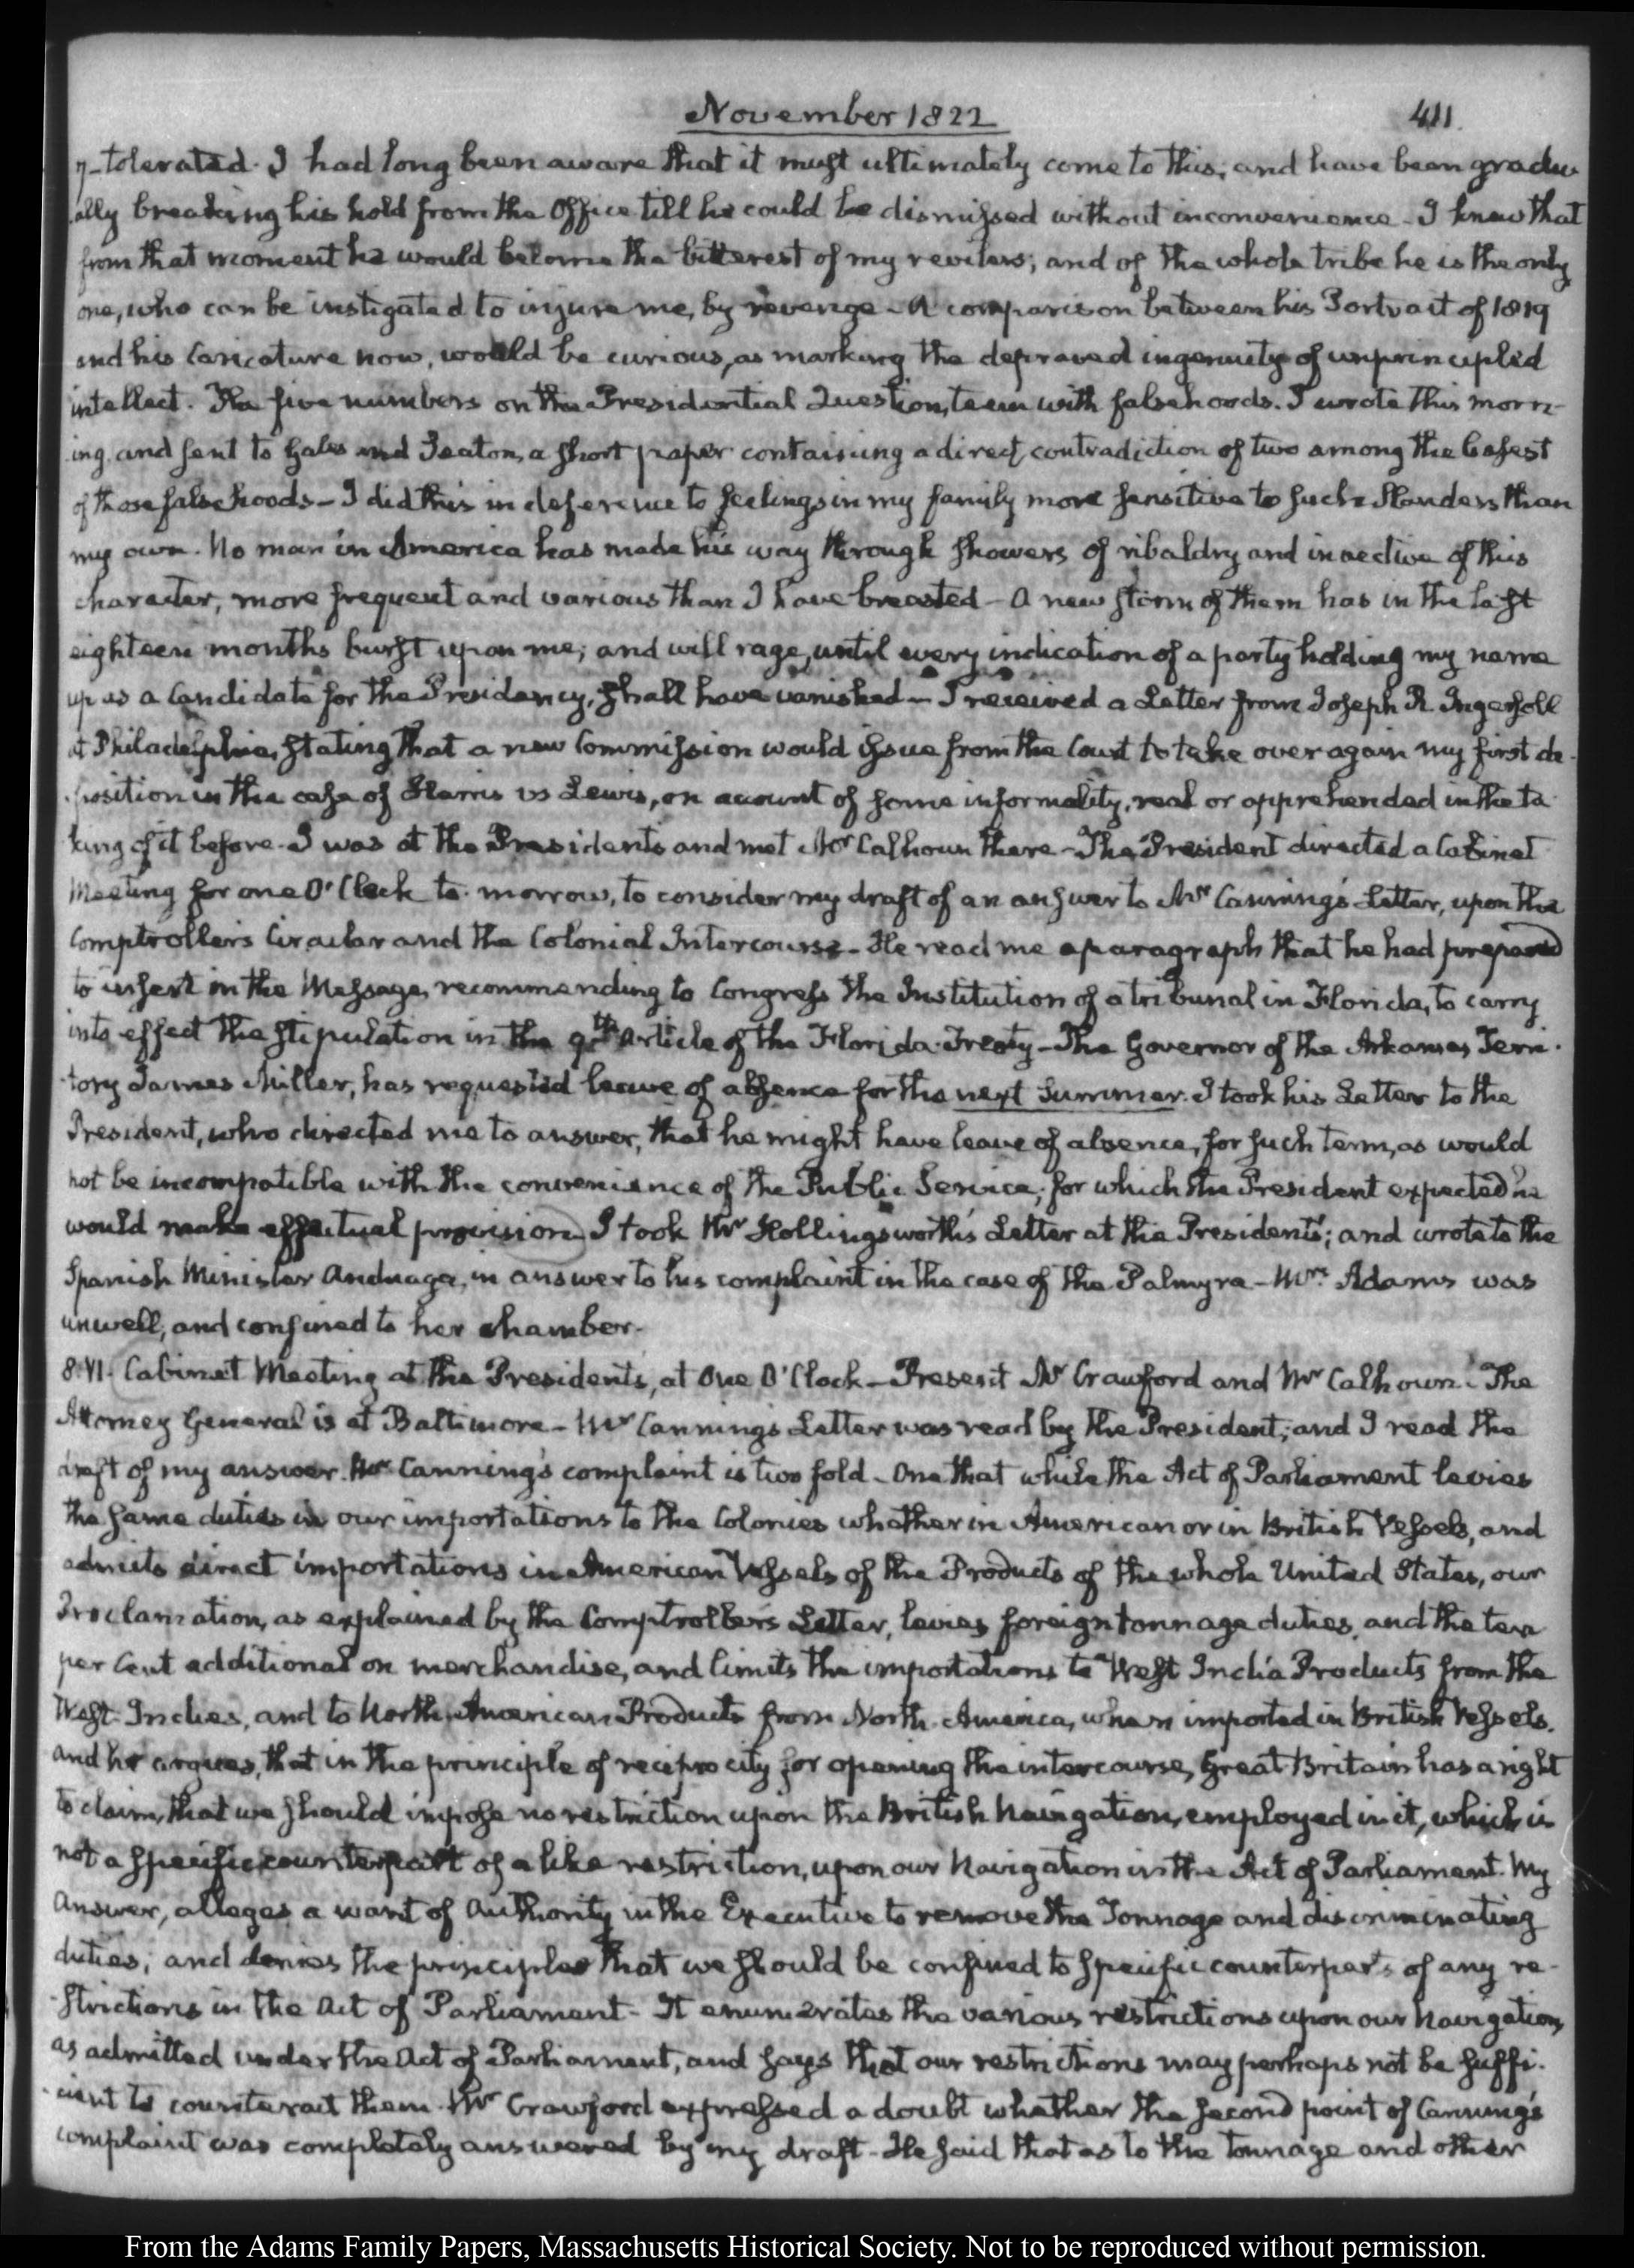 November 1822
411.
7- tolerated. I had long been aware that it must ultimately come to this; and have been gradu
ally breaking his hold from the Office till he could be dismissed without inconvenience - I knew that
from that moment he would become the bitterest of my revilers; and of the whole tribe he is the only
one, who can be instigated to injure me, by revenge - A comparison between his Portrait of 1819
and his Caricature now, would be curious, as marking the depraved ingenuity of unprincipled
intellect. The five numbers on the Presidential Question, teem with falsehoods. I wrote this morn-
ing, and sent to Gales and Seaton, a short paper containing a direct contradiction of two among the basest
of those falsehoods - I did this in deference to feelings in my family more sensitive to such Slanders than
my own. No man in America has made his way through showers of ribaldry and invective of this
character, more frequent and various than I have breasted - A new storm of them has in the last
eighteen months burst upon me; and will rage, until every indication of a party holding my name
up as a Candidate for the Presidency, shall have vanished - I received a Letter from Joseph R. Ingersoll
at Philadelphia, stating that a new Commission would issue from the Court to take over again my first de-
position in the case of Harris vs Lewis, on account of some informality, real or apprehended in the ta-
king of it before. I was at the Presidents and met Mr Calhoun there - The President directed a Cabinet
Meeting for one O'Clock to-morrow, to consider my draft of an answer to Mr Canning's Letter, upon the
Comptroller's Circular and the Colonial Intercourse - He read me a paragraph that he had prepared
to insert in the Message, recommending to Congress the Institution of a tribunal in Florida, to carry
into effect the stipulation in the 9th Article of the Florida Treaty - The Governor of the Arkansas Terri-
tory James Miller, has requested leave of absence for the next Summer. I took his Letter to the
President, who directed me to answer, that he might have leave of absence, for such term, as would
not be incompatible with the convenience of the Public Service; for which the President expected he
would make effectual provision I took Mr Hollingsworth's Letter at the Presidents; and wrote to the
Spanish Minister Anduaga, in answer to his complaint in the case of the Palmyra - Mrs Adams was
unwell, and confined to her chamber.
8. VI. Cabinet Meeting at the Presidents, at One O'Clock - Present Mr Crawford and Mr Calhoun. The
Attorney General is at Baltimore - Mr Canning's Letter was read by the President; and I read the
draft of my answer. Mr Canning's complaint is two fold - One that while the Act of Parliament levies
the same duties in our importations to the Colonies whether in American or in British Vessels, and
admits direct importations in American Vessels of the Products of the whole United States, our
Proclamation, as explained by the Comptroller's Letter, levies foreign tonnage duties, and the ten
per Cent additional on merchandise, and limits the importations to West India Products from the
West-Indies, and to North-American Products from North-America, when imported in British Vessels.
and he argues, that in the principle of reciprocity for opening the intercourse, Great-Britain has a right
to claim, that we should impose no restriction upon the British Navigation, employed in it, which is
not a specific counterpart of a like restriction, upon our Navigation in the Act of Parliament. My
Answer, alleges a want of Authority in the Executive to remove the Tonnage and discriminating
duties; and denies the principle that we should be confined to specific counterparts of any re-
strictions in the Act of Parliament - It enumerates the various restrictions upon our Navigation,
as admitted under the Act of Parliament, and says that our restrictions may perhaps not be suffi-
cient to counteract them. Mr Crawford expressed a doubt whether the second point of Canning's
complaint was completely answered by my draft - He said that as to the tonnage and other
From the Adams Family Papers, Massachusetts Historical Society. Not to be reproduced without permission.